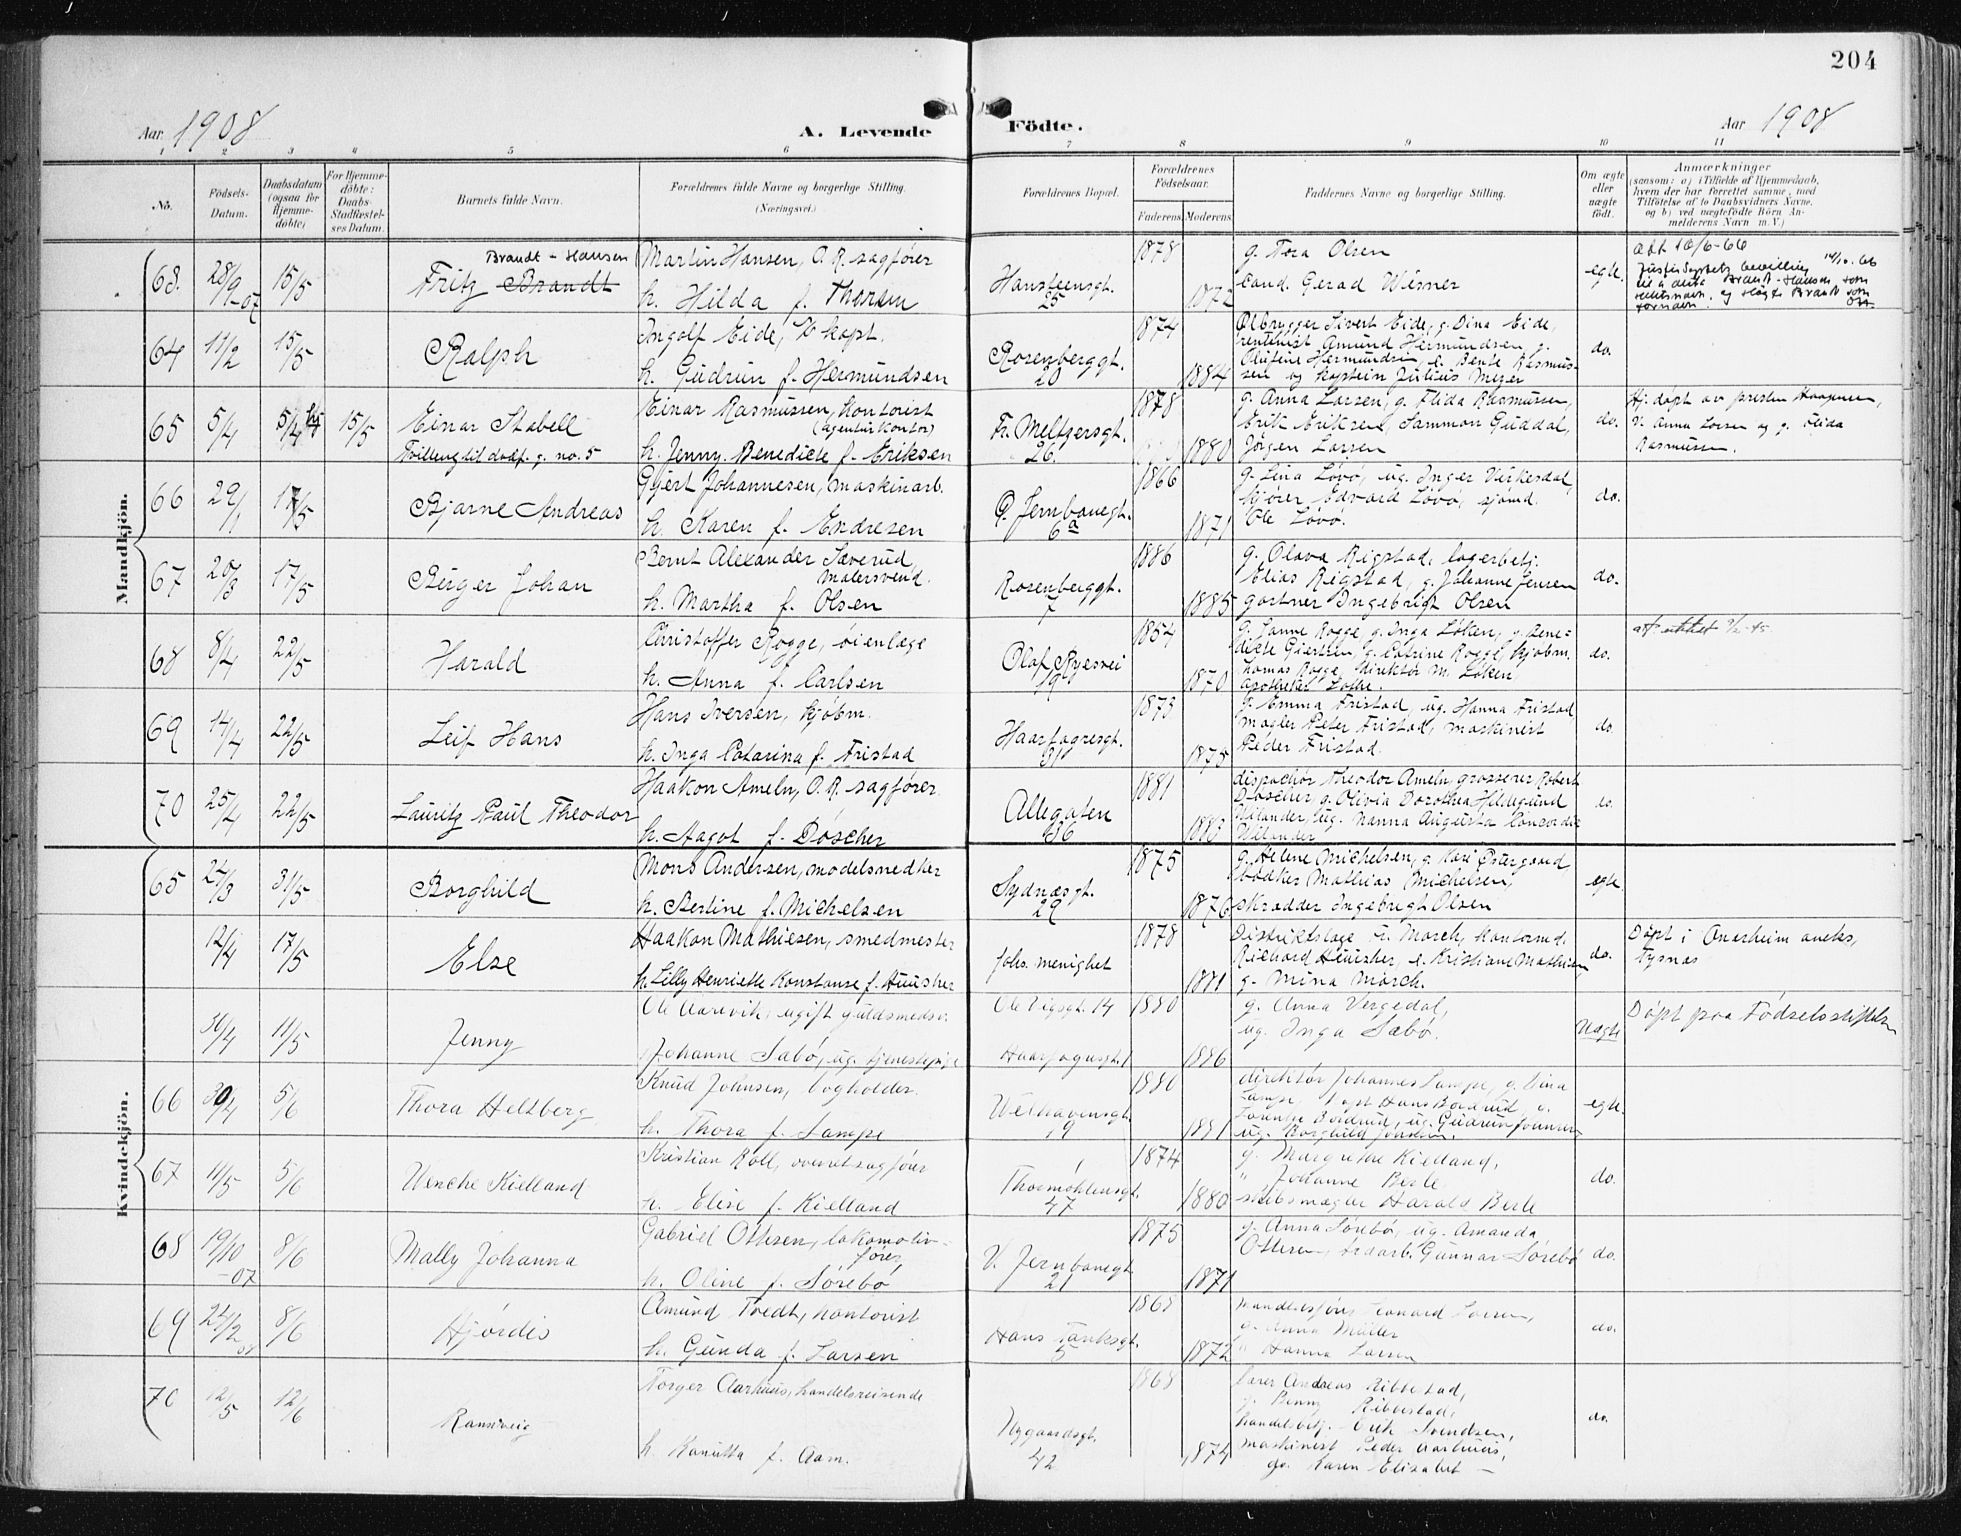 204
Aar 1908
A. Levende Födte.
Aar 1908
1 2 3 4 5 6 7 8 9 10 11
No.
Födsels-Datum.
Daabsdatum (ogsaa for Hjemme-döbte)
For Hjemme-döbte: Daabs-Stadfæstel-ses Datum.
Barnets fulde Navn.
Forældrenes fulde Navne og borgerlige Stilling.
(Næringsvei.)
Forældrenes Bopæl.
Forældrenes Födselsaar.
Faderens Moderens
Faddernes Navne og borgerlige Stilling.
Om ægte eller uægte födt.
Anmærkninger
(saasom: a) i Tilfælde af Hjemmedaab,
hvem der har forrettet samme, med
Tilföielse af to Daabsvidners Navne,
og b) ved uægtefödte Börn An-
melderens Navn m. V.)
Mandkjön.
63. 28/9-07 15/5 Brandt - Hansen
Fritz Brandt
Martin Hansen, O.R. sagfører
h. Hilda f. Thorsen
Hansteensgt. 25
1878 1872
g. Tora Olsen
Cand. Gerad Wisner
egte.
att 16/6-66
64 11/2 15/5 Ralph
Ingolf Eide, kapt.
h. Gudrun f. Hermundsen
Rosenberggt. 20
1874 1884
Ølbrygger Sivert Eide, g. Dina Eide,
rentenist Amund Hermundsen, g.
Olufine Hermundsen, e. Bente Rasmus-
sen og kaptein Julius Meyer
do.
65 5/4 5/4 15/5 Einar Stabell
Tvilling til dødf. g. no. 5
Einar Rasmussen, kontorist
(agenturkontor)
h. Jenny Benedicte f. Eriksen
Fr. Meltzersgt. 26.
1878 1880
g. Anna Larsen, g. Elida Rasmussen,
Erik Eriksen, Sammon Guddal,
Jørgen Larsen
do.
Hj. døpt av presten
V. Anna Larsen og g. Elida
Rasmussen.
66 29/1 17/5 Bjarne Andreas
Gjert Johannesen, maskinarb.
h. Karen f. Endresen
Ø. Jernbanegt. 6a
1866 1871
g. Lina Løvø, ug. Inger Virkesdal,
kjører Edvard Løvø, sjømd.
Ole Løvø.
do.
67 20/3 17/5 Birger Johan
Bernt Alexander Sæverud,
Malersvend.
h. Martha f. Olsen
Rosenberggt. 7
1886 1885
g. Olava Rigstad, lagerbetj.
Elias Rigstad, g. Johanne Jensen
gartner Ingebrigt Olsen
do.
68 8/4 22/5 Harald
Christoffer Rogge, øienlæge
h. Anna f. Carlsen
Olaf Ryesvei 19
1854 1870
g. Janne Rogge, g. Inga Løken, g. Bene-
dicte Giertsen, g. Catrine Rogge, kjøbm.
Tomas Rogge, direktør M. Løken,
apotheker Lothe.
do.
69 14/4 22/5 Leif Hans
Hans Iversen, kjøbm.
h. Inga Catarina f. Fristad
Haarfagresgt. 31
1873 1875
g. Emma Fristad, ug. Hanna Fristad
mægler Peter Fristad, maskinist
Peder Fristad.
do.
70 25/4 22/5 Lauritz Paul Theodor
Haakon Ameln, O.R. sagfører.
h. Aagot f. Döscher
Allegaten 36
1881 1883
dispachør Theodor Ameln, grosserer Robert
Döscher, g. Olivia Dorothea Hildegund
Wilander, ug. Nanna Augusta Concordia
Wilander
do.
Kvindekjön.
65 24/3 31/5 Borghild
Mons Andersen, modelsnedker
h. Bertine f. Michelsen
Sydnæsgt. 29
1875 1876
g. Helene Michelsen, g. Kari Østergaard
bødker Mathias Michelsen,
skrædder Ingebrigt Olsen
egte.
12/4 17/5 Else
Haakon Mathiesen, smedmester
h. Lilly Henriette Konstanse f. Huusher
Johs. menighet
1878 1881
Distriktslæge Fr. Morch, kontormd.
Richard Heuisher, e. Kristiane Mathiesen
g. Mina Mörch.
do.
Døpt i Onarheim aneks,
Tysnæs
30/4 11/5 Jenny
Ole Aarevik, ugift guldsmedsv.
Johanne Sæbø, ug. tjenestepige
Ole Vigsgt. 14
Haarfagresgt. 1
1880 1886
g. Anna Vergedal,
ug. Inga Sæbø.
Uægte
Døpt paa Födselsstiftelsen
66 30/4 5/6 Thora Heltberg
Knud Johnsen, bogholder.
h. Thora f. Lampe
Welhavensgt. 19
1880 1881
direktør Johannes Lampe, g. Dina
Lampe, Hans Bordrud, g.
ug. Borghild Jonsson.
egte.
67 11/5 5/6 Wenche Kielland
Kristian Roll, overretsagfører
h. Elise f. Kielland
Thormøhlensgt. 47
1874 1880
g. Margrethe Kielland,
" Johanne Berle
skibsmægler Harald Berle
do.
68 19/10-07 8/6 Mally Johanna
Gabriel Ottesen, lokomotiv-
fører,
h. Oline f. Sørebø
V. Jernbanegt. 21
1875 1871
g. Anna Sørebø, ug. Amanda
Ottesen, Gunnar Sørebø
do.
69 22/2 08 8/6 Hjørdis
Amund Tvedt, kontorist
h. Gunda f. Larsen
Hans Tanksgt. 5
1868 1872
Leonard Larsen,
g. Anna Müller
" Hanna Larsen
do.
70 12/5 12/6 Rannveig
Torger Aarhuus, handelsreisende
h. Kanutta f. Aam.
Nygaardsgt. 42
1868 1874
lærer Andreas Ribbestad,
g. Penny Ribbestad,
handelsbetj. Erik Svendsen,
maskinist Peder Aarhuus,
gv. Karen Elisabet -
do.